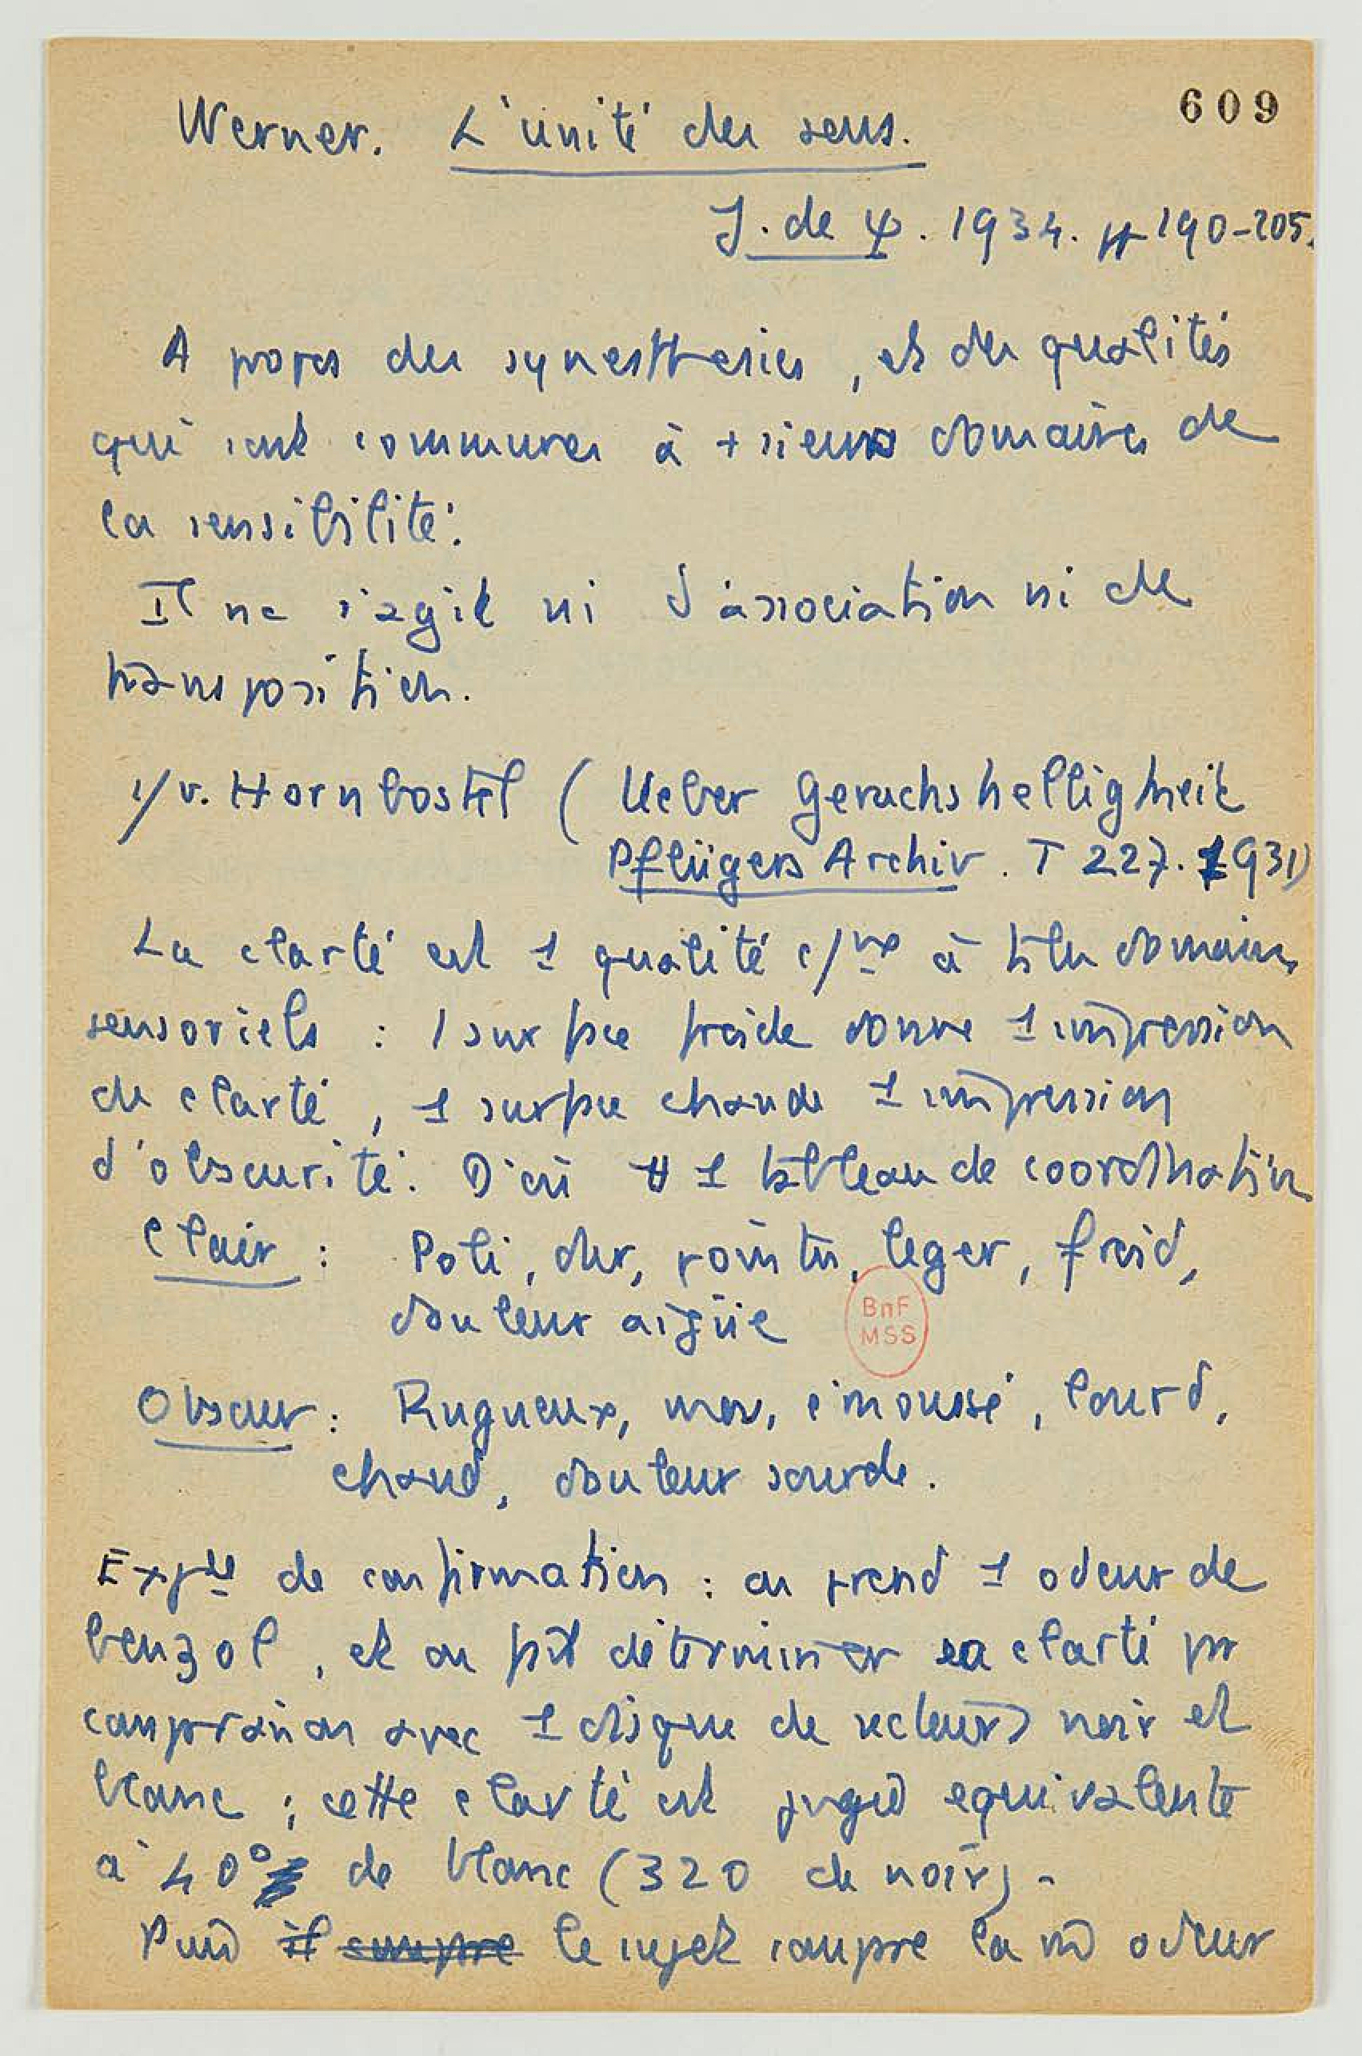 609
Werner. L'unité des sens.
J. de ψ. 1934. pp 190-205.
A propos des synesthesies, et des qualités
qui sont communes à +sieurs domaines de
la sensibilité.
Il ne s'agit ni d'association ni de
transposition.
1/ v. Hornbostel (Ueber Geruchshelligkeit
Pflügers Archiv. T 227. 1931)
La clarté est 1 qualité c/ne à ts les domaines
sensoriels : 1 surface froide donne 1 impression
de clarté, 1 surface chaude 1 impression
d'obscurité. D'où 1 tableau de coordination
Clair : Poli, dur, pointu, leger, froid,
douleur aigüe
BnF
MSS
Obscur : Rugueux, mou, émoussé, lourd,
chaud, douleur sourde.
de confirmation : on prend 1 odeur de
benzol, et on fait déterminer sa clarté par
comparaison avec 1 disque de secteurs noir et
blanc ; cette clarté est jugée equivalente
à 40° de blanc (320 de noir).
Puis il compare le sujet compare la odeur